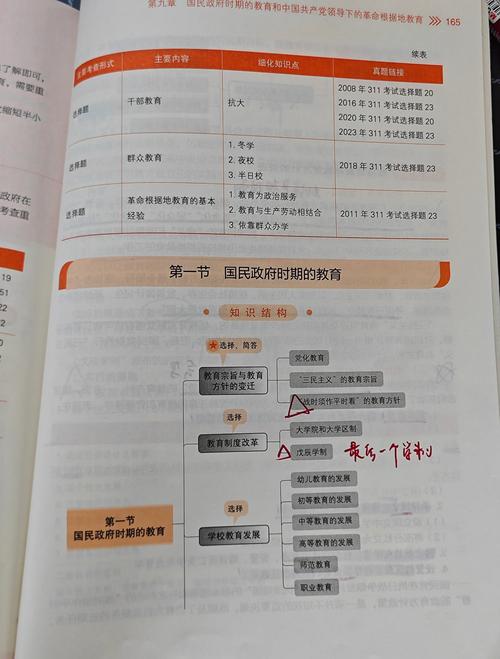 第九章 国民政府时期的教育和中国共产党领导下的革命根据地教育 165
续表
主要内容 细化知识点 真题链接
选择题 干部教育 抗大
2008 年 311 考试选择题 20
2016 年 311 考试选择题 23
2020 年 311 考试选择题 20
2023 年 311 考试选择题 23
选择题 群众教育
1. 冬学
2. 夜校
3. 半日校
2018 年 311 考试选择题 23
选择题 革命根据地教育的基本
经验
1. 教育为政治服务
2. 教育与生产劳动相结合
3. 依靠群众办学
2011 年 311 考试选择题 23
第一节 国民政府时期的教育
知识结构
选择、简答
教育宗旨与教育
方针的变迁
党化教育
“三民主义”的教育宗旨
“战时须作平时看”的教育方针
选择
教育制度改革
大学院和大学区制
戊辰学制
最后一个学制
第一节
国民政府时期的教育
选择
学校教育发展
幼儿教育的发展
初等教育的发展
中等教育的发展
高等教育的发展
师范教育
职业教育
了解即可,
需要重
缩短半小
政府在
考查重
19
51
22
22